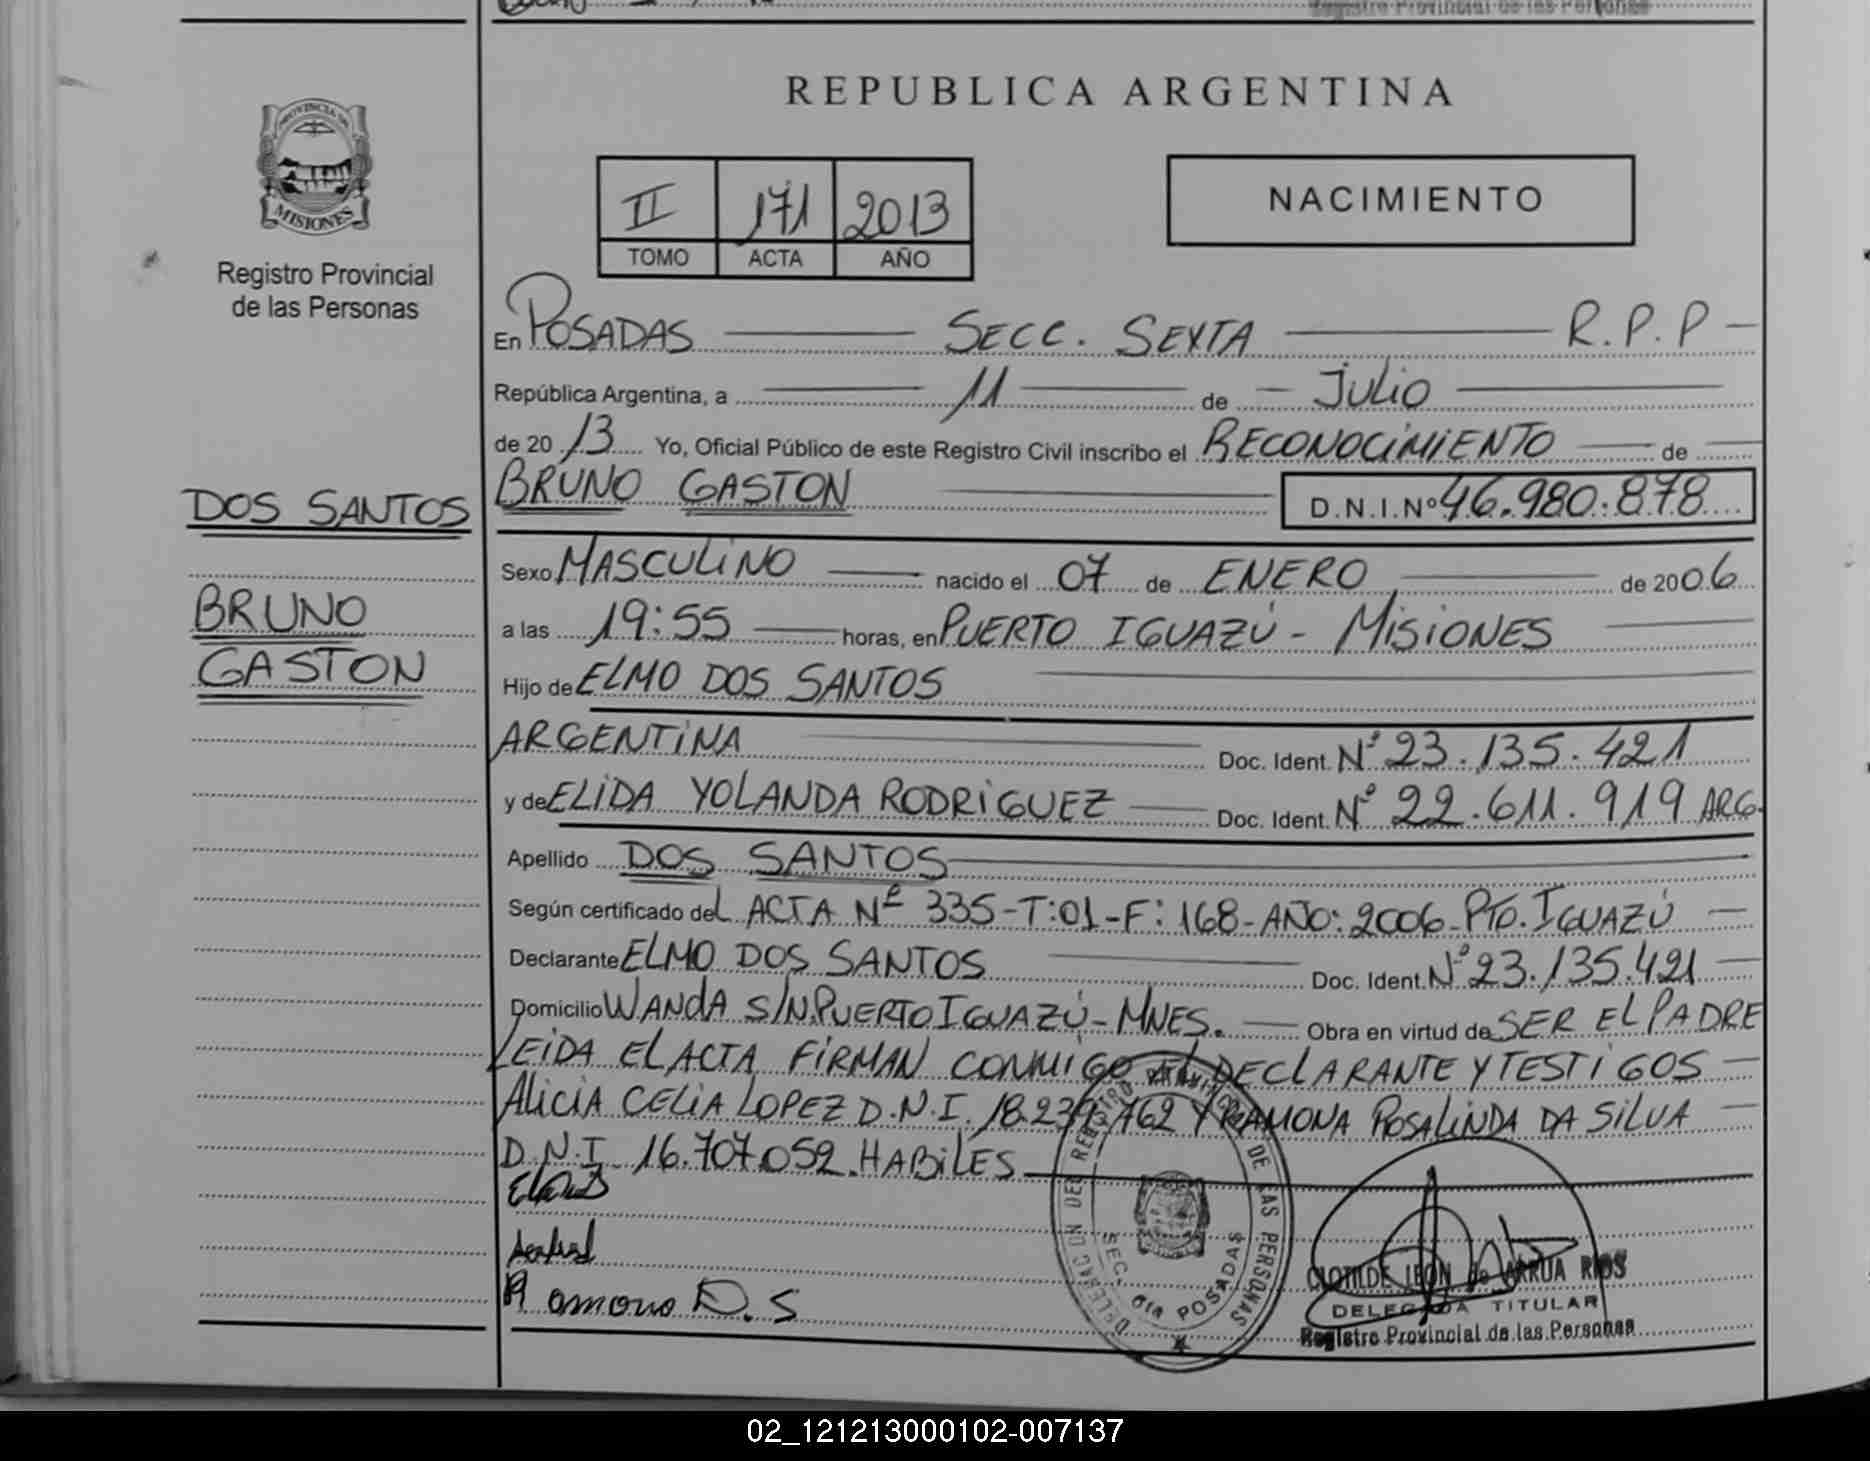 Registro Provincial de las Personas
PROVINCIA DE
MISIONES
Registro Provincial
de las Personas
DOS SANTOS
BRUNO
GASTON
REPUBLICA ARGENTINA
II 171 2013
TOMO ACTA AÑO
NACIMIENTO
En POSADAS SECC. SEXTA R.P.P
República Argentina, a 11 de JULIO
de 2013 Yo, Oficial Público de este Registro Civil inscribo el RECONOCIMIENTO de
BRUNO GASTON D.N.I.Nº 46.980.878
Sexo MASCULINO nacido el 07 de ENERO de 2006
a las 19:55 horas, en PUERTO IGUAZÚ - MISIONES
Hijo de ELMO DOS SANTOS
ARGENTINA Doc. Ident. Nº 23.135.421
y de ELIDA YOLANDA RODRIGUEZ Doc. Ident. Nº 22.611.919 ARG.
Apellido DOS SANTOS
Según certificado del ACTA Nº 335-T:01-F:168-AÑO:2006-PTO.IGUAZÚ
Declarante ELMO DOS SANTOS Doc. Ident. Nº 23.135.421
Domicilio WANDA S/N.PUERTO IGUAZÚ-MNES. Obra en virtud de SER EL PADRE
LEIDA EL ACTA FIRMAN CONMIGO EL DECLARANTE Y TESTIGOS
ALICIA CELIA LOPEZ D.N.I. 18.239.762 Y RAMONA ROSALINDA DA SILVA
D.N.I. 16.707.052. HABILES
Ramona D.S
DELEGACION DEL REGISTRO PROVINCIAL DE LAS PERSONAS
SEC. 6ta POSADAS
CLOTILDE LEON de ARRUA RIOS
DELEGADA TITULAR
Registro Provincial de las Personas
02_121213000102-007137